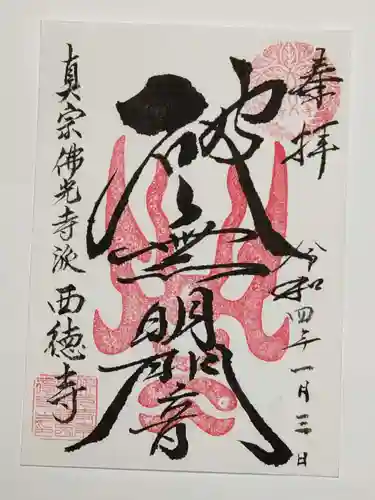 奉拝
令和四年一月三日
破無明闇
真宗佛光寺派西徳寺